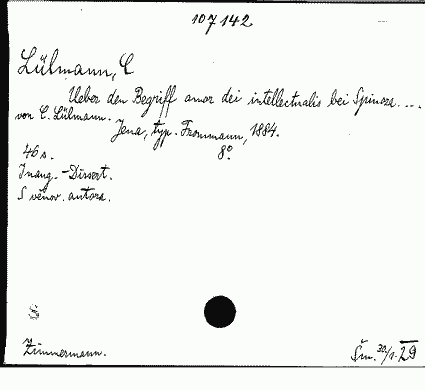 107142
Lülmann, C
Ueber den Begriff amor dei intellectualis bei Spinoza....
von C. Lülmann.
Jena, typ. Frommann, 1884.
46 s. 8°
Inaug.-Dissert.
S věnov. autora.
S
Zimmermann. Šm. 30/1. 29